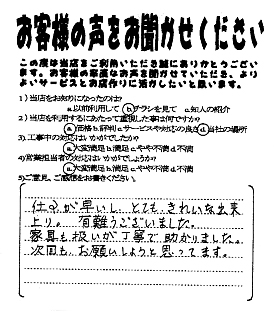 お客様の声をお聞かせください
この度は当店をご利用いただき誠にありがとうござい
ます。お客様の率直なお声を聞かせていただき、より
よいサービスとお店作りに活かしたいと思います。
1)当店をお知りになったのは?
a.以前利用して b.チラシを見て c.知人の紹介
2)当店を利用するにあたって重視した事は何ですか?
a.価格 b.評判 c.サービスや対応の良さ d.当社の場所
3)工事中の対応はいかがでしたか?
a.大変満足 b.満足 c.やや不満 d.不満
4)営業担当者の対応はいかがでしょうか?
a.大変満足 b.満足 c.やや不満 d.不満
5)ご意見、ご感想をお書きください。
仕事が早いし、とても、きれいな出来
上り。有難うございました。
家具も扱いが丁寧で助かりました。
次回も、お願いしようと思ってます。